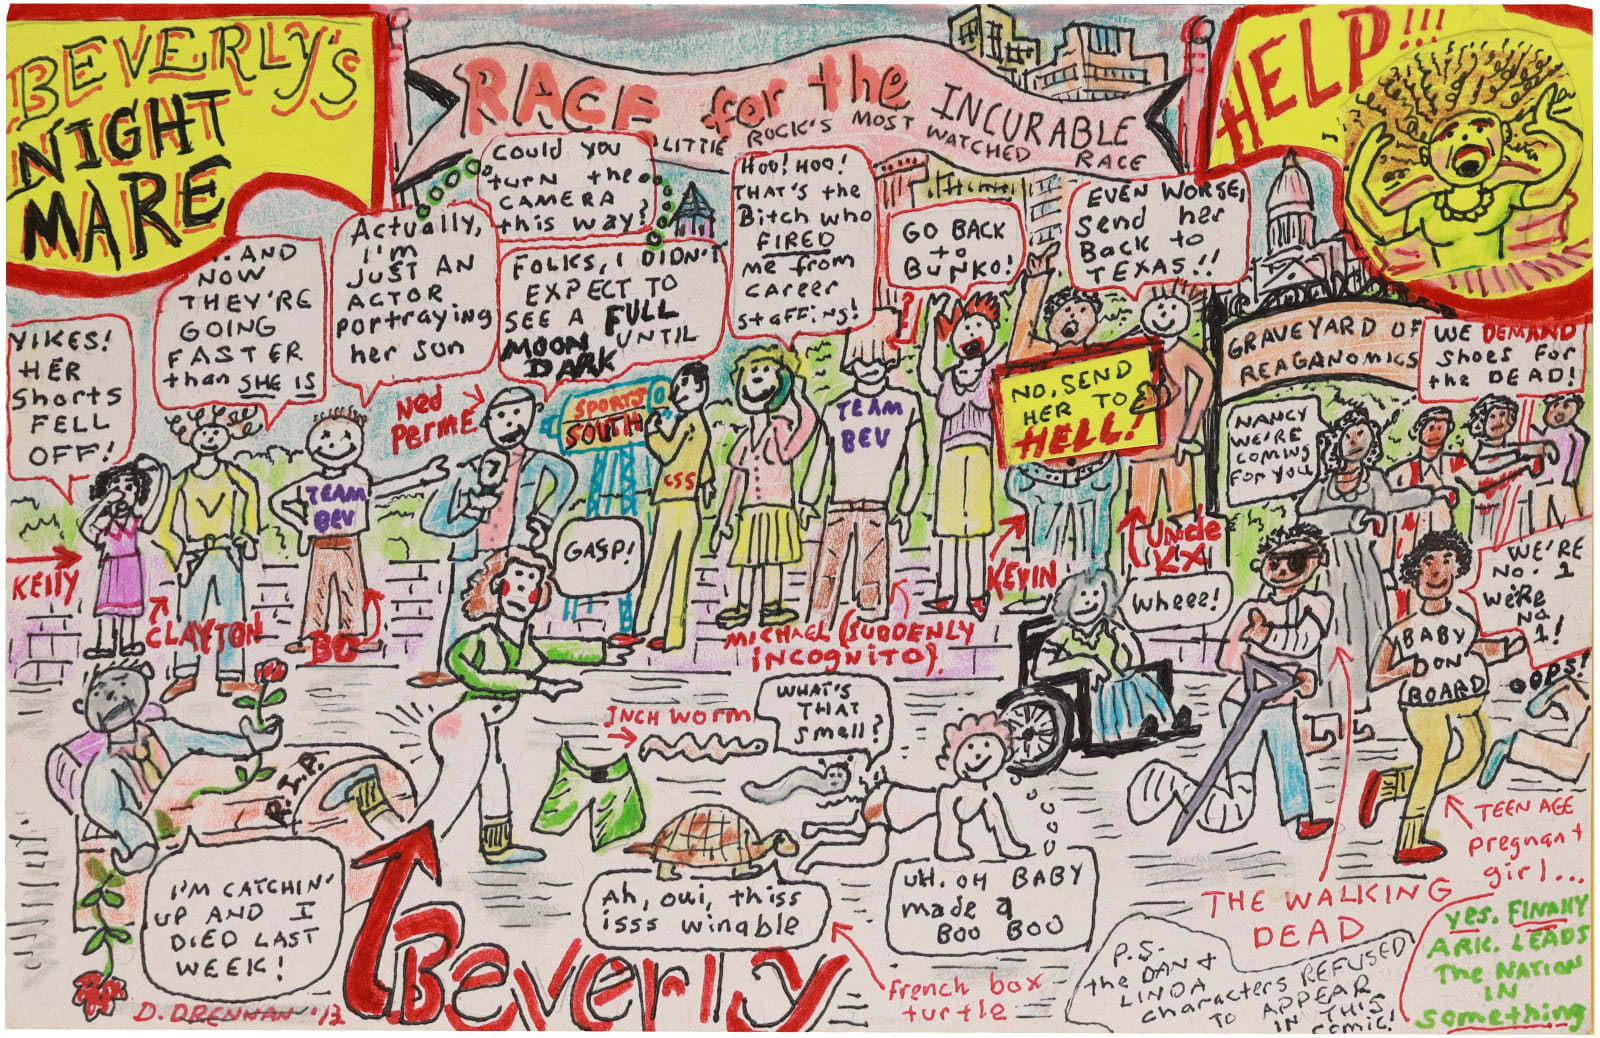 BEVERLY'S
NIGHT
MARE
RACE for the INCURABLE
LITTLE ROCK'S MOST WATCHED RACE
HELP!!!
YIKES!
HER
Shorts
FELL
OFF!
...AND
NOW
THEY'RE
GOING
FASTER
than SHE IS
Actually,
I'M
JUST AN
ACTOR
portraying
her son
Could you
turn the
CAMERA
this way?
FOLKS, I DIDN'T
EXPECT TO
SEE A FULL
MOON UNTIL
DARK
HOO! HOO!
THAT'S the
Bitch who
FIRED
me from
career
staffing!
GO BACK
to
BUNKO!
EVEN WORSE,
Send her
Back to
TEXAS!!
NO, SEND
HER TO
HELL!
GRAVEYARD OF
REAGANOMICS
WE DEMAND
Shoes for
the DEAD!
NANCY
WE'RE
COMING
FOR YOU
Ned
PERME
SPORTS
SOUTH
CSS
TEAM
BEV
TEAM
BEV
KELLY
CLAYTON
BO
GASP!
MICHAEL (SUDDENLY
INCOGNITO).
KEVIN
Uncle
KX
Wheee!
WE'RE
NO. 1
We're
No.
1!
BABY
ON
BOARD
OOPS!
INCH WORM
WHAT'S
THAT
Smell?
R.I.P.
I'M CATCHIN'
UP AND I
DIED LAST
WEEK!
Ah, oui, thiss
isss winable
UH. OH BABY
made a
BOO BOO
Beverly
french box
turtle
THE WALKING
DEAD
TEENAGE
pregnant
girl...
P.S.
the DAN &
LINDA
characters REFUSED
TO APPEAR
IN THIS
comic!
Yes. FINALLY
ARK. LEADS
The NATION
IN
Something
D. DRENNAN '13